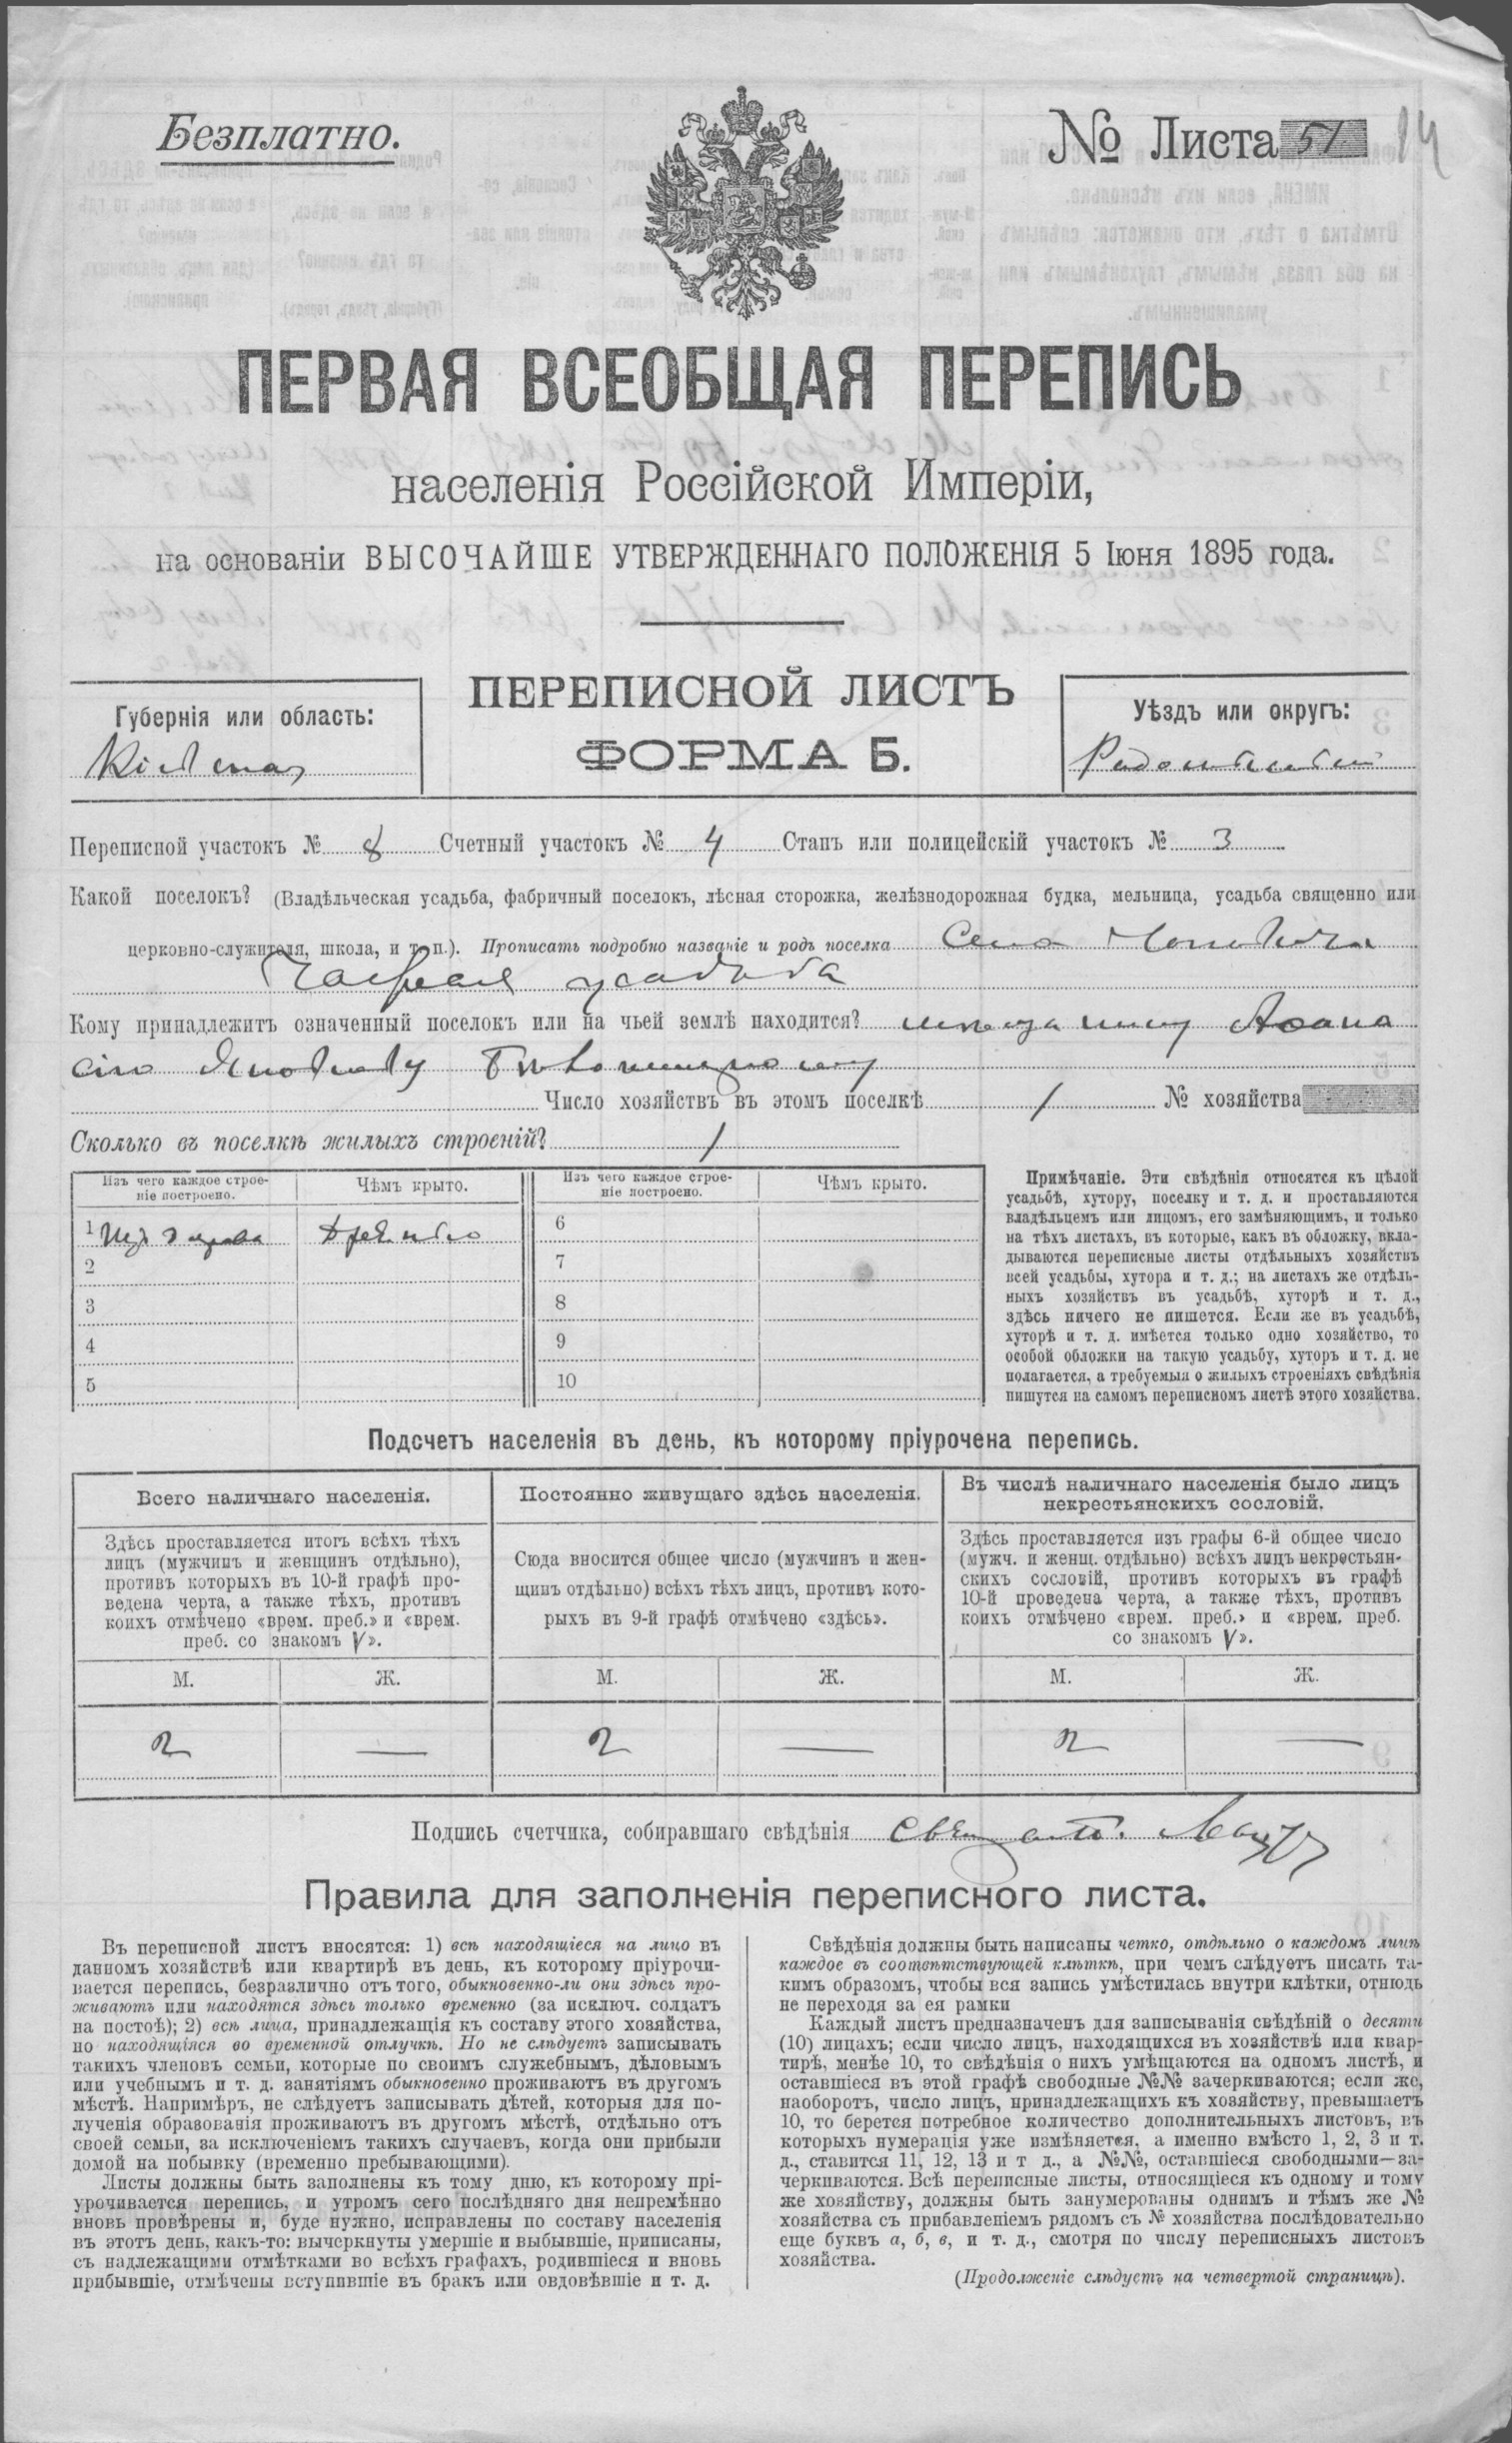 Безплатно.
№ Листа 51
14
ПЕРВАЯ ВСЕОБЩАЯ ПЕРЕПИСЬ
населенія Россійской Имперіи,
на основаніи ВЫСОЧАЙШЕ УТВЕРЖДЕННАГО ПОЛОЖЕНІЯ 5 Іюня 1895 года.
Губернія или область:
Кіевская
ПЕРЕПИСНОЙ ЛИСТЪ
ФОРМА Б.
Уѣздъ или округъ:
Радомысльскій
Переписной участокъ № 8 Счетный участокъ № 4 Станъ или полицейскій участокъ № 3
Какой поселокъ? (Владѣльческая усадьба, фабричный поселокъ, лѣсная сторожка, желѣзнодорожная будка, мельница, усадьба священно или
церковно-служителя, школа, и т. п.). Прописать подробно названіе и родъ поселка Село
усадьба
Кому принадлежитъ означенный поселокъ или на чьей землѣ находится? мѣщанину Аѳана
сію
Число хозяйствъ въ этомъ поселкѣ 1 № хозяйства
Сколько въ поселкѣ жилыхъ строеній? 1
Изъ чего каждое строе-
ніе построено.
Чѣмъ крыто.
Изъ чего каждое строе-
ніе построено.
Чѣмъ крыто.
1 Изъ дерева
6
2
7
3
8
4
9
5
10
Примѣчаніе. Эти свѣдѣнія относятся къ цѣлой
усадьбѣ, хутору, поселку и т. д. и проставляются
владѣльцемъ или лицомъ, его замѣняющимъ, и только
на тѣхъ листахъ, въ которые, какъ въ обложку, вкла-
дываются переписные листы отдѣльныхъ хозяйствъ
всей усадьбы, хутора и т. д.; на листахъ же отдѣль-
ныхъ хозяйствъ въ усадьбѣ, хуторѣ и т. д.,
здѣсь ничего не пишется. Если же въ усадьбѣ,
хуторѣ и т. д. имѣется только одно хозяйство, то
особой обложки на такую усадьбу, хуторъ и т. д. не
полагается, а требуемыя о жилыхъ строеніяхъ свѣдѣнія
пишутся на самомъ переписномъ листѣ этого хозяйства.
Подсчетъ населенія въ день, къ которому пріурочена перепись.
Всего наличнаго населенія.
Здѣсь проставляется итогъ всѣхъ тѣхъ
лицъ (мужчинъ и женщинъ отдѣльно),
противъ которыхъ въ 10-й графѣ про-
ведена черта, а также тѣхъ, противъ
коихъ отмѣчено «врем. преб.» и «врем.
преб. со знакомъ V».
М. Ж.
2 —
Постоянно живущаго здѣсь населенія.
Сюда вносится общее число (мужчинъ и жен-
щинъ отдѣльно) всѣхъ тѣхъ лицъ, противъ кото-
рыхъ въ 9-й графѣ отмѣчено «здѣсь».
М. Ж.
2 —
Въ числѣ наличнаго населенія было лицъ
некрестьянскихъ сословій.
Здѣсь проставляется изъ графы 6-й общее число
(мужч. и женщ. отдѣльно) всѣхъ лицъ некрестьян-
скихъ сословій, противъ которыхъ въ графѣ
10-й проведена черта, а также тѣхъ, противъ
коихъ отмѣчено «врем. преб.» и «врем. преб.
со знакомъ V».
М. Ж.
2 —
Подпись счетчика, собиравшаго свѣдѣнія
Правила для заполненія переписного листа.
Въ переписной листъ вносятся: 1) всѣ находящіеся на лицо въ
данномъ хозяйствѣ или квартирѣ въ день, къ которому пріурочи-
вается перепись, безразлично отъ того, обыкновенно-ли они здѣсь про-
живаютъ или находятся здѣсь только временно (за исключ. солдатъ
на постоѣ); 2) всѣ лица, принадлежащія къ составу этого хозяйства,
но находящіяся во временной отлучкѣ. Но не слѣдуетъ записывать
такихъ членовъ семьи, которые по своимъ служебнымъ, дѣловымъ
или учебнымъ и т. д. занятіямъ обыкновенно проживаютъ въ другомъ
мѣстѣ. Напримѣръ, не слѣдуетъ записывать дѣтей, которыя для по-
лученія образованія проживаютъ въ другомъ мѣстѣ, отдѣльно отъ
своей семьи, за исключеніемъ такихъ случаевъ, когда они прибыли
домой на побывку (временно пребывающими).
Листы должны быть заполнены къ тому дню, къ которому прі-
урочивается перепись, и утромъ сего послѣдняго дня непремѣнно
вновь провѣрены и, буде нужно, исправлены по составу населенія
въ этотъ день, какъ-то: вычеркнуты умершіе и выбывшіе, приписаны,
съ надлежащими отмѣтками во всѣхъ графахъ, родившіеся и вновь
прибывшіе, отмѣчены вступившіе въ бракъ или овдовѣвшіе и т. д.
Свѣдѣнія должны быть написаны четко, отдѣльно о каждомъ лицѣ
каждое въ соотвѣтствующей клѣткѣ, при чемъ слѣдуетъ писать та-
кимъ образомъ, чтобы вся запись умѣстилась внутри клѣтки, отнюдь
не переходя за ея рамки
Каждый листъ предназначенъ для записыванія свѣдѣній о десяти
(10) лицахъ; если число лицъ, находящихся въ хозяйствѣ или квар-
тирѣ, менѣе 10, то свѣдѣнія о нихъ умѣщаются на одномъ листѣ, и
оставшіеся въ этой графѣ свободные №№ зачеркиваются; если же,
наоборотъ, число лицъ, принадлежащихъ къ хозяйству, превышаетъ
10, то берется потребное количество дополнительныхъ листовъ, въ
которыхъ нумерація уже измѣняется, а именно вмѣсто 1, 2, 3 и т.
д., ставится 11, 12, 13 и т д., а №№, оставшіеся свободными—за-
черкиваются. Всѣ переписные листы, относящіеся къ одному и тому
же хозяйству, должны быть занумерованы однимъ и тѣмъ же №
хозяйства съ прибавленіемъ рядомъ съ № хозяйства послѣдовательно
еще буквъ а, б, в, и т. д., смотря по числу переписныхъ листовъ
хозяйства.
(Продолженіе слѣдуетъ на четвертой страницѣ).